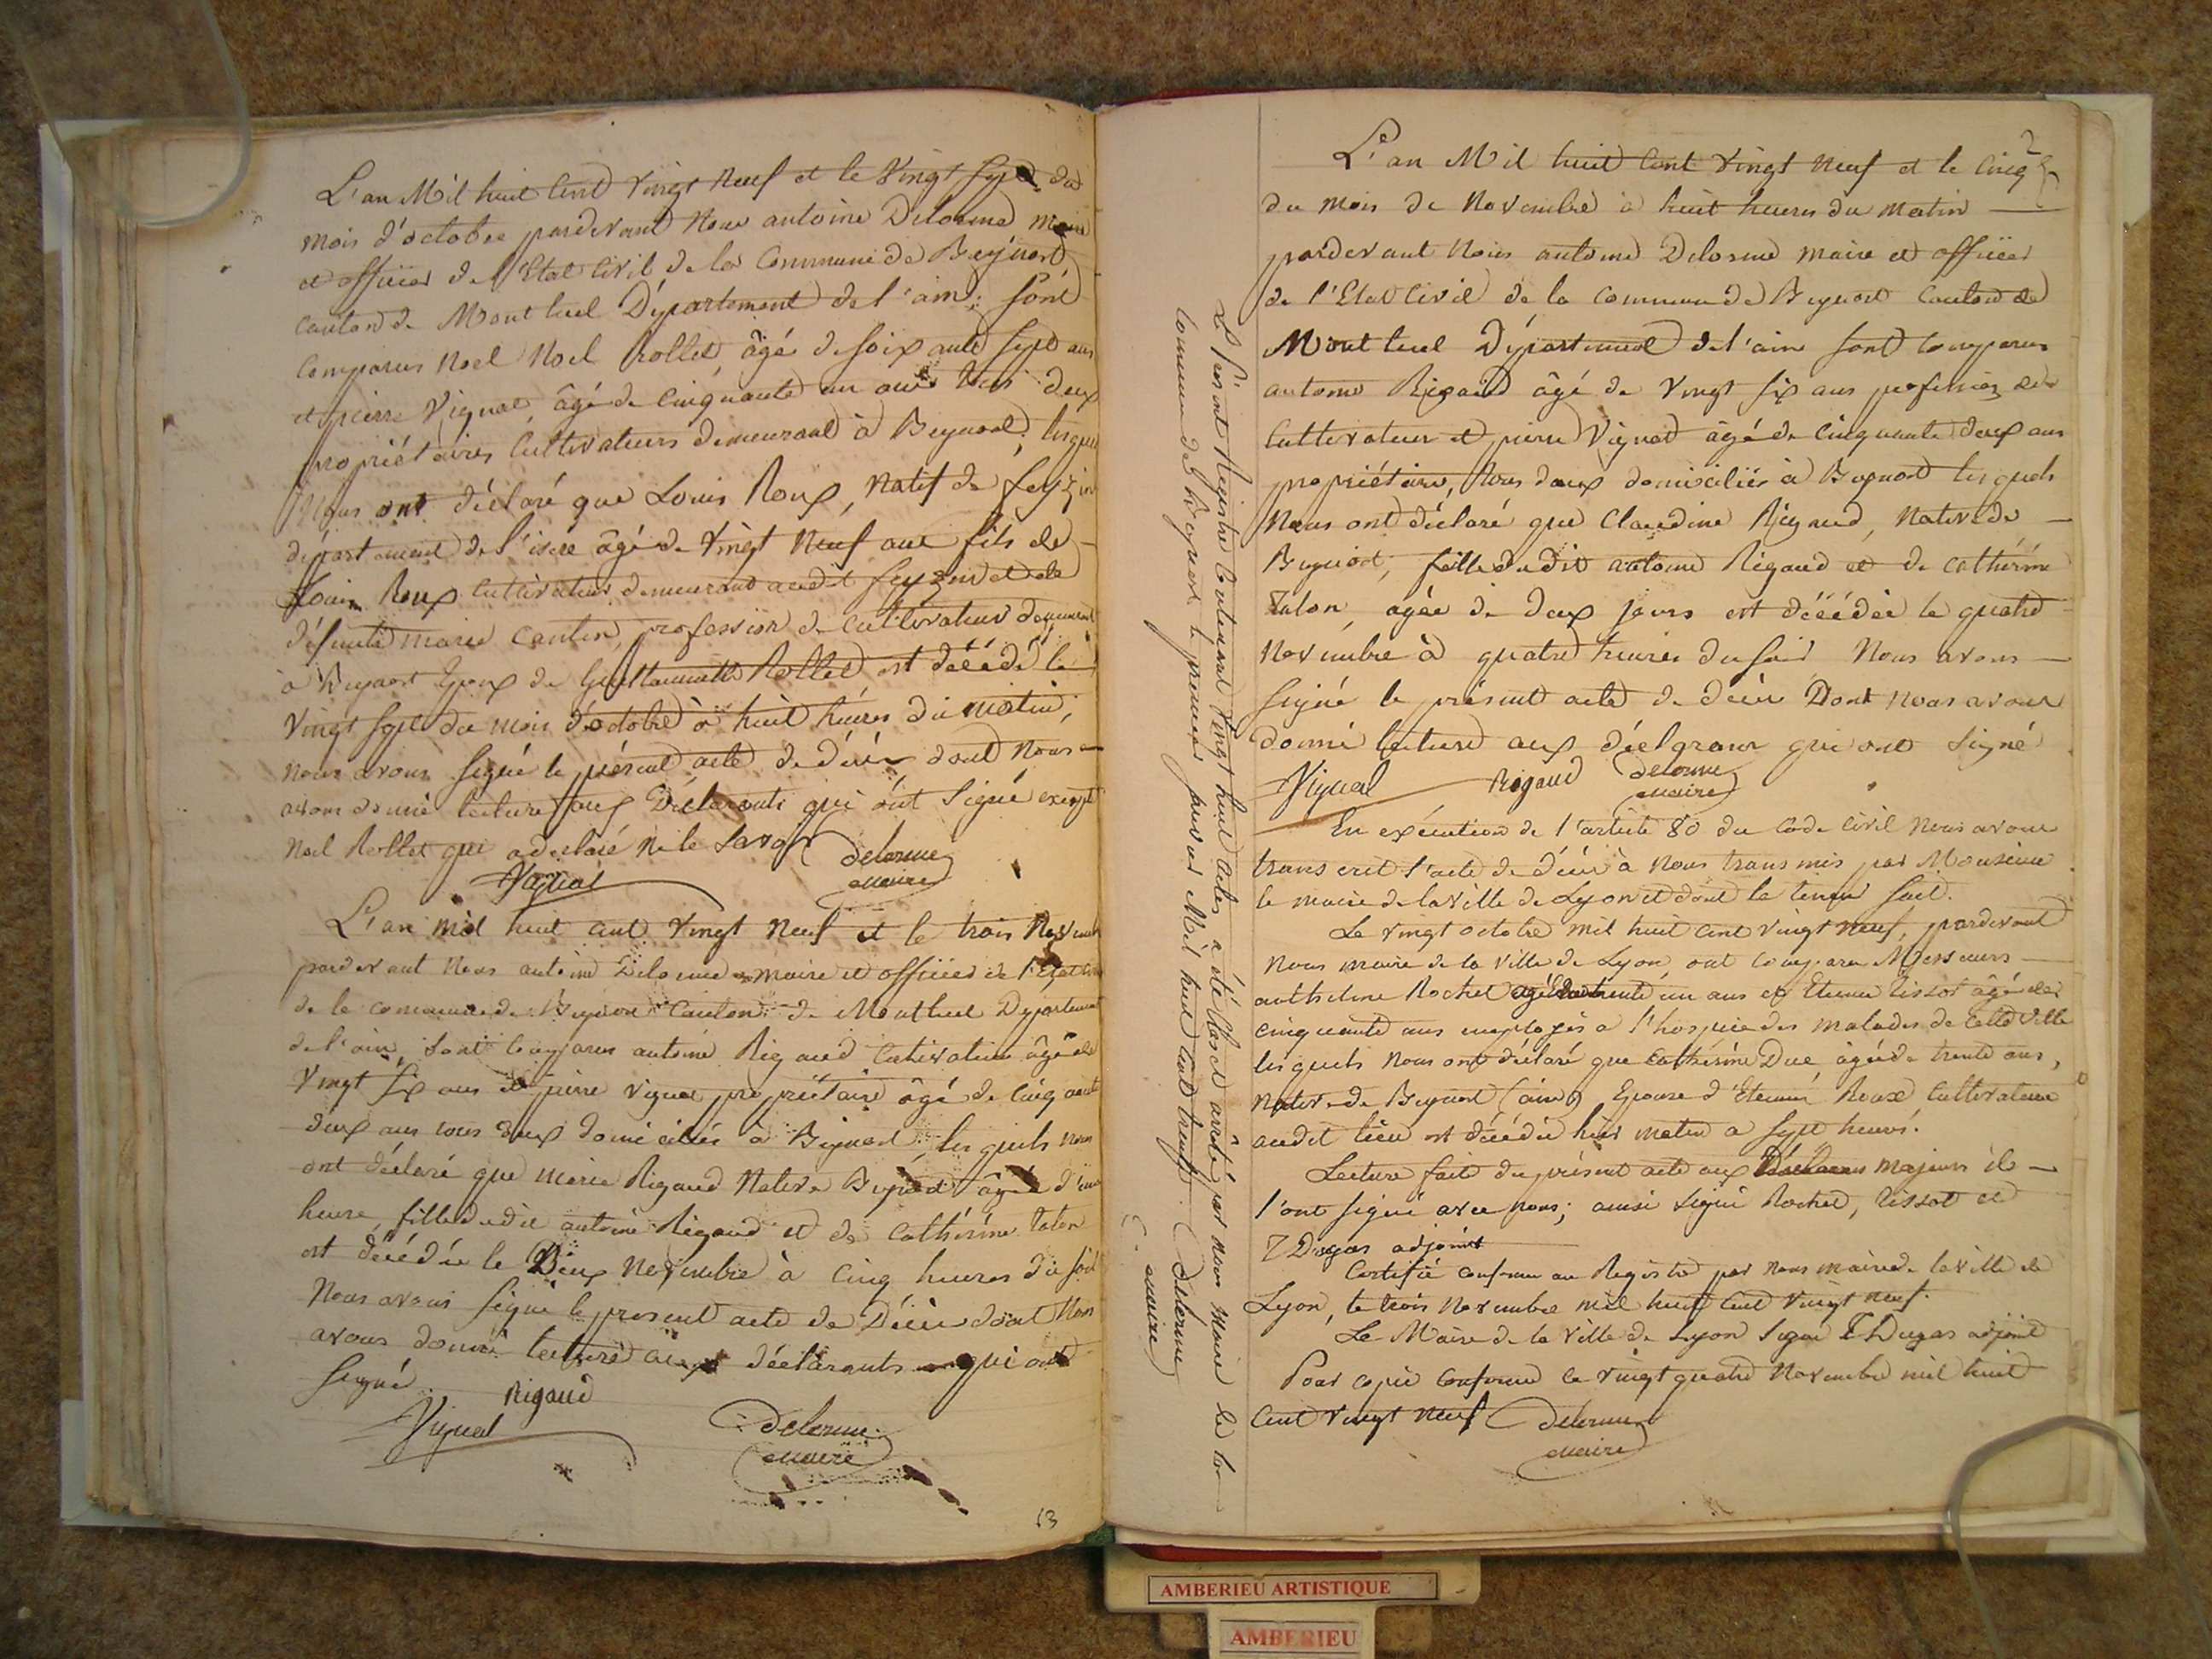 L'an Mil huit Cent Vingt Neuf et le Vingt Sept du
mois d'octobre pardevant Nous antoine Delorme maire
et officier de l'Etat Civil de la Commune de Beynost
canton de Montluel Département de l'ain; sont
comparus Noel Noel Rollet, âgé de soixante sept ans
et pierre Vignat, âgé de Cinquante un ans tous deux
propriétaires Cultivateurs demeurant à Beynost; lesquels
Nous ont déclaré que Louis Roux, natif de feyzin
département de l'isere âgé de Vingt Neuf ans fils de
Louis Roux Cultivateur demeurant audit feyzin et de
défunte marie cantin, profession de cultivateur demeurant
à Beynost Epoux de Guillaumette Rollet est décédé le
Vingt Sept du mois d'octobre à huit heures du matin;
nous avons signé le présent acte de décès dont nous
avons donné lecture aux Déclarants qui ont Signé excepté
Noel Rollet qui a déclaré ne le Savoir
Vignat Delorme
maire
L'an mil huit cent Vingt Neuf et le trois Novembre
pardevant Nous antoine Delorme maire et officier de l'Etat Civil
de la commune de Beynost Canton de Montluel Département
de l'ain, sont comparus antoine Rigaud Cultivateur âgé de
Vingt Six ans et pierre Vignat propriétaire âgé de Cinquante
deux ans tous deux domiciliés à Beynost, lesquels nous
ont déclaré que marie Rigaud Native Beynost âgée d'une
heure, fille dudit antoine Rigaud et de Cathérine talon
est décédée le Deux Novembre à Cinq heures du soir
Nous avons signé le present acte de Décès dont Nous
avons donné lecture aux déclarants qui ont
signé
Rigaud
Vignat Delorme
maire
63
2
L'an Mil huit Cent Vingt Neuf et le Cinq
du mois de Novembre à huit heures du matin
pardevant Nous antoine Delorme maire et officier
de l'Etat Civil de la commune de Beynost Canton de
Montluel Département de l'ain sont comparus
antoine Rigaud âgé de Vingt Six ans profession de
Cultivateur et pierre Vignat âgé de Cinquante deux ans
propriétaire, tous deux domiciliés à Beynost lesquels
Nous ont déclaré que Claudine Rigaud, Native de
Beynost, fille dudit antoine Rigaud et de cathérine
Talon, agée de deux jours est décédée le quatre
Novembre à quatre heures du soir Nous avons
signé le présent acte de décès Dont nous avons
donné lecture aux déclarans qui ont signé
Vignat Rigaud Delorme
maire
En exécution de l'article 80 du Code Civil Nous avons
transcrit l'acte de décès à Nous transmis par Monsieur
le maire de la Ville de Lyon et dont la teneur suit.
Le vingt octobre mil huit cent vingt neuf, pardevant
Nous maire de la Ville de Lyon ont comparu Messieurs
anthelme Rochet âgé de trente un ans et Etienne tissot âgé de
cinquante ans employés a l'hospice des malades de cette Ville
lesquels nous ont déclaré que Cathérine Duc, âgée de trente ans,
Native de Beynost (ain) Epouse d'Etienne Roux Cultivateur
audit lieu est décédée hier matin a sept heures.
Lecture faite du présent acte aux Déclarans majeurs ils
l'ont signé avec nous; ainsi Signé Rochet, tissot et
T Dugas adjoint
Certifié conforme au Registre par Nous maire de la Ville de
Lyon, le trois Novembre mil huit Cent vingt neuf.
Le Maire de la Ville de Lyon Signé T Dugas adjoint
Pour copie conforme le vingt quatre Novembre mil huit
Cent Vingt Neuf Delorme
maire
Le Présent Registre contenant Vingt huit actes a été Clos et arrêté par nous Maire de la
Commune de Beynost le premier janvier Mil huit Cent trente. Delorme
maire
AMBERIEU ARTISTIQUE
AMBERIEU